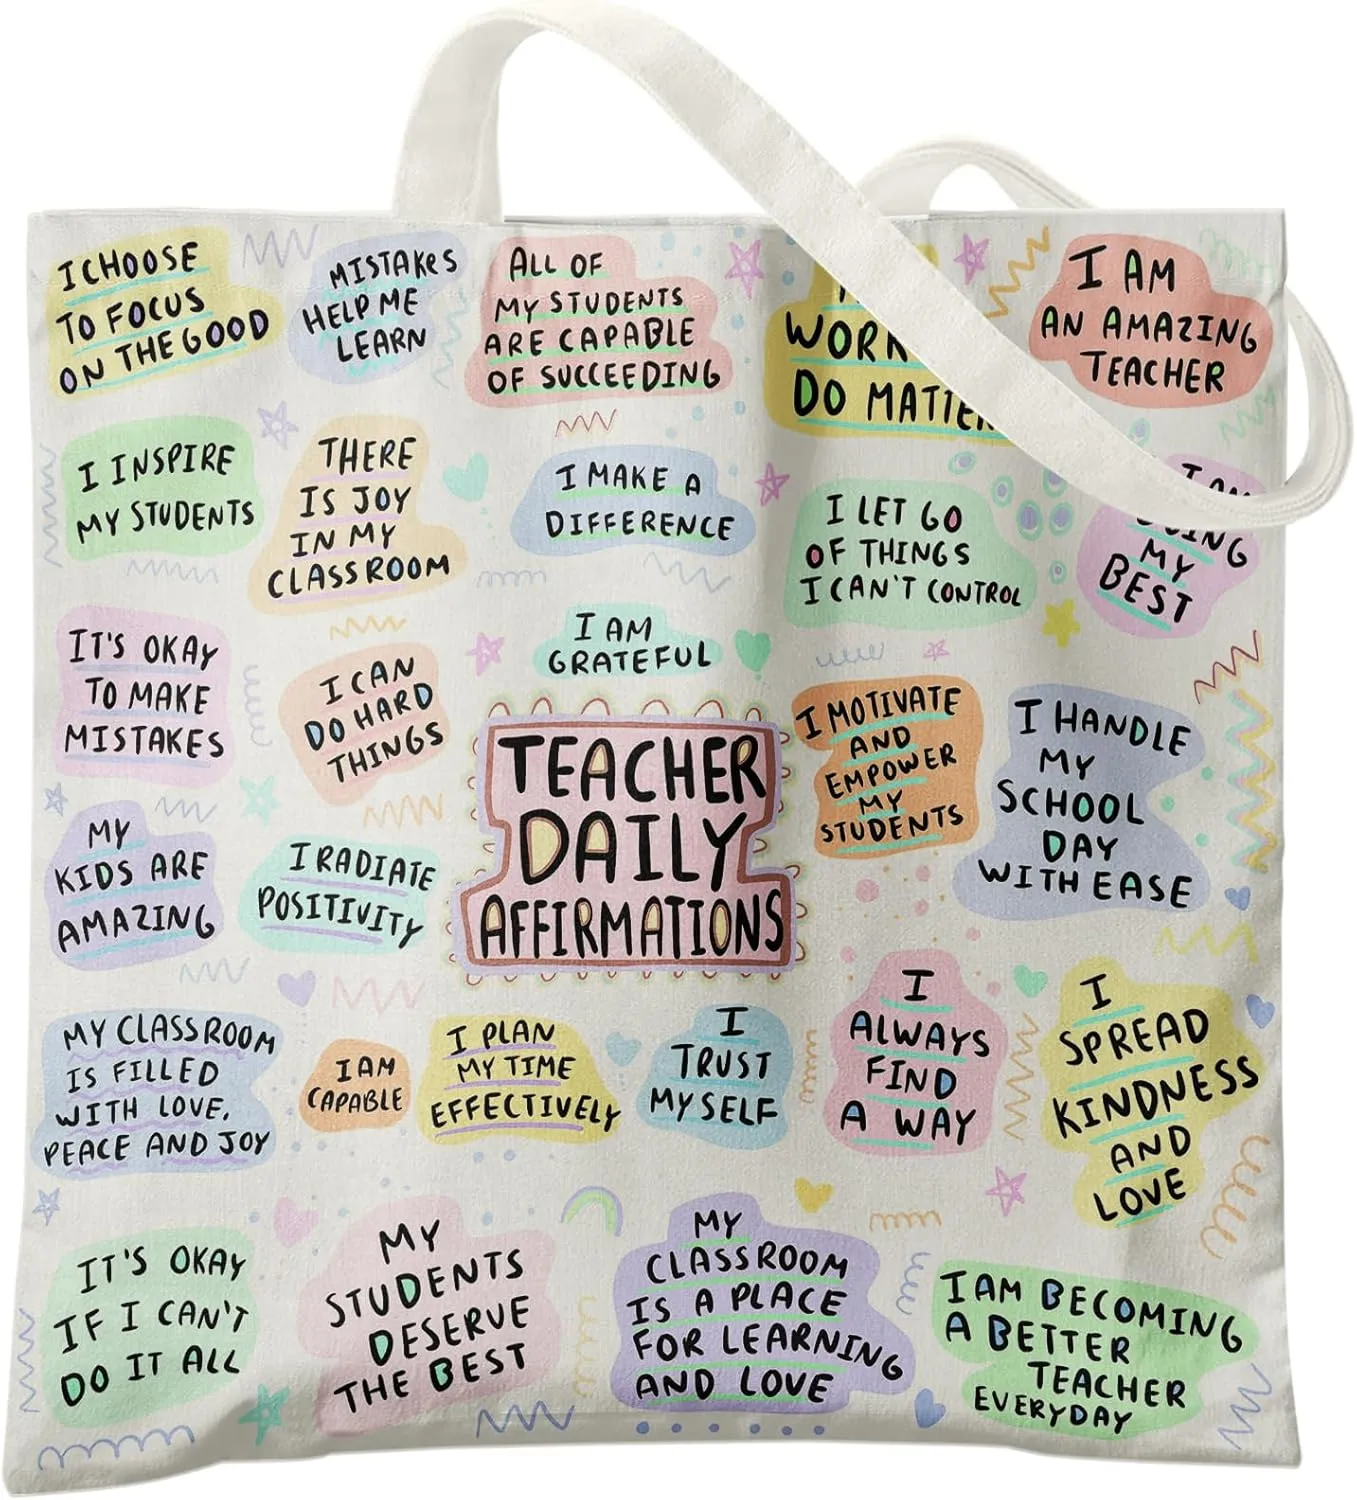 I CHOOSE
TO FOCUS
ON THE GOOD
MISTAKES
HELP ME
LEARN
ALL OF
MY STUDENTS
ARE CAPABLE
OF SUCCEEDING
DO MATTER
I AM
AN AMAZING
TEACHER
I INSPIRE
MY STUDENTS
THERE
IS JOY
IN MY
CLASSROOM
I MAKE A
DIFFERENCE
I LET GO
OF THINGS
I CAN'T CONTROL
I AM
DOING
MY
BEST
IT'S OKAY
TO MAKE
MISTAKES
I CAN
DO HARD
THINGS
I AM
GRATEFUL
TEACHER
DAILY
AFFIRMATIONS
I MOTIVATE
AND
EMPOWER
MY
STUDENTS
I HANDLE
MY
SCHOOL
DAY
WITH EASE
MY
KIDS ARE
AMAZING
I RADIATE
POSITIVITY
MY CLASSROOM
IS FILLED
WITH LOVE,
PEACE AND JOY
I AM
CAPABLE
I PLAN
MY TIME
EFFECTIVELY
I
TRUST
MYSELF
I
ALWAYS
FIND
A WAY
I
SPREAD
KINDNESS
AND
LOVE
IT'S OKAY
IF I CAN'T
DO IT ALL
MY
STUDENTS
DESERVE
THE BEST
MY
CLASSROOM
IS A PLACE
FOR LEARNING
AND LOVE
I AM BECOMING
A BETTER
TEACHER
EVERYDAY